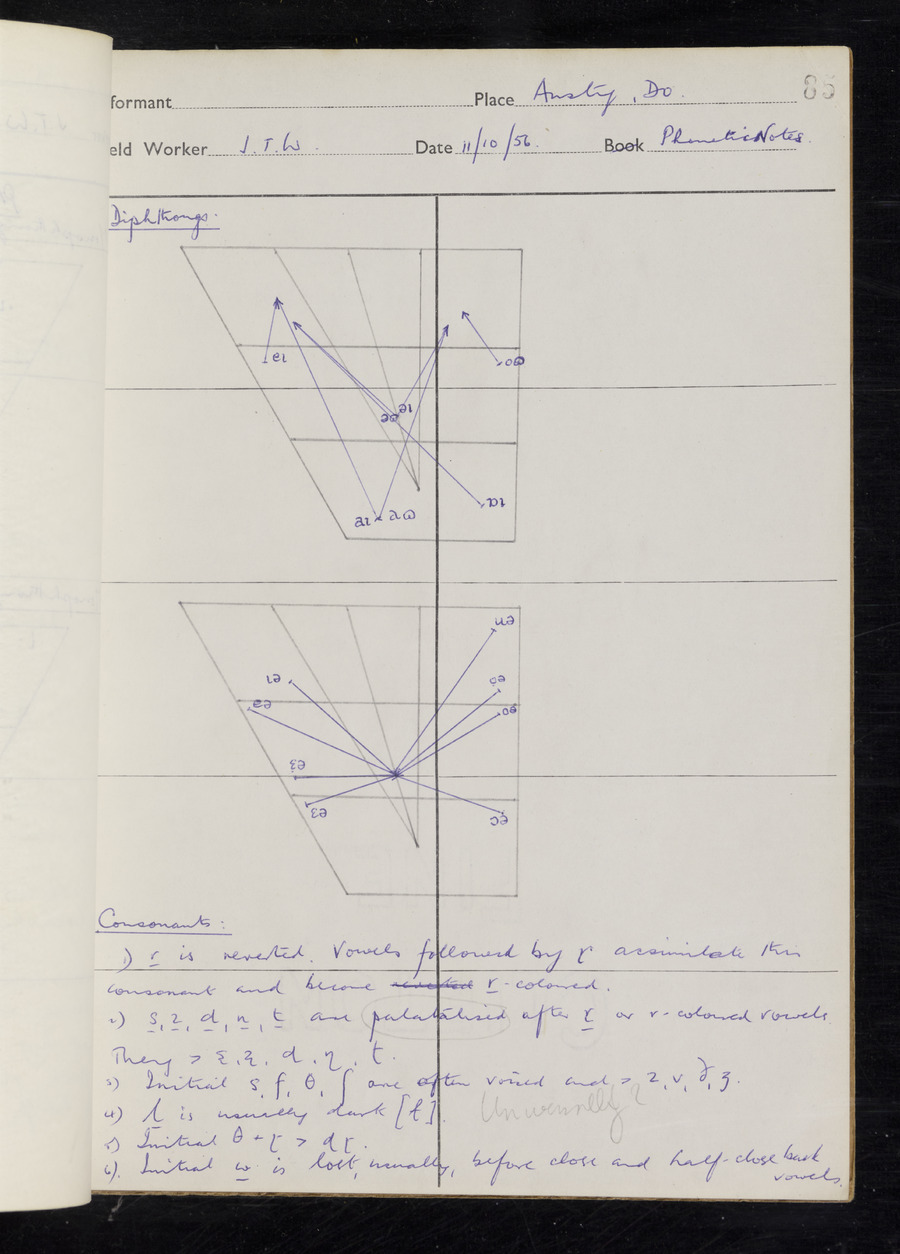 formant Place Ansty, Do. 85
eld Worker J.T.W. Date 11/10/56. Book Phonetic Notes.
Diphthongs.
eɪ
oɷ
əɪ
əɷ
ɒɪ
aɪ aɷ
uə
ɪə
ɷə
eə
oə
ɛə
ɛə
ɔə
Consonants:
1) r is reverted. Vowels followed by ɽ assimilate this
consonant and become reverted r-coloured.
2) s, z, d, n, t are palatalised after ɽ or r-coloured vowels.
They >
3) Initial s, f, θ, ʃ are often voiced and > z, v, ð, ʒ.
4) l is usually dark [ɫ]. Universally?
5) Initial θ + ɽ > dɽ.
6). Initial w is lost, usually, before close and half-close back
vowels.